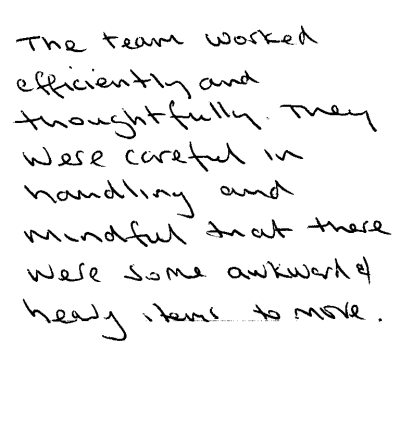 The team worked
efficiently and
thoughtfully. They
were careful in
handling and
mindful that there
were some awkward &
heavy items to move.